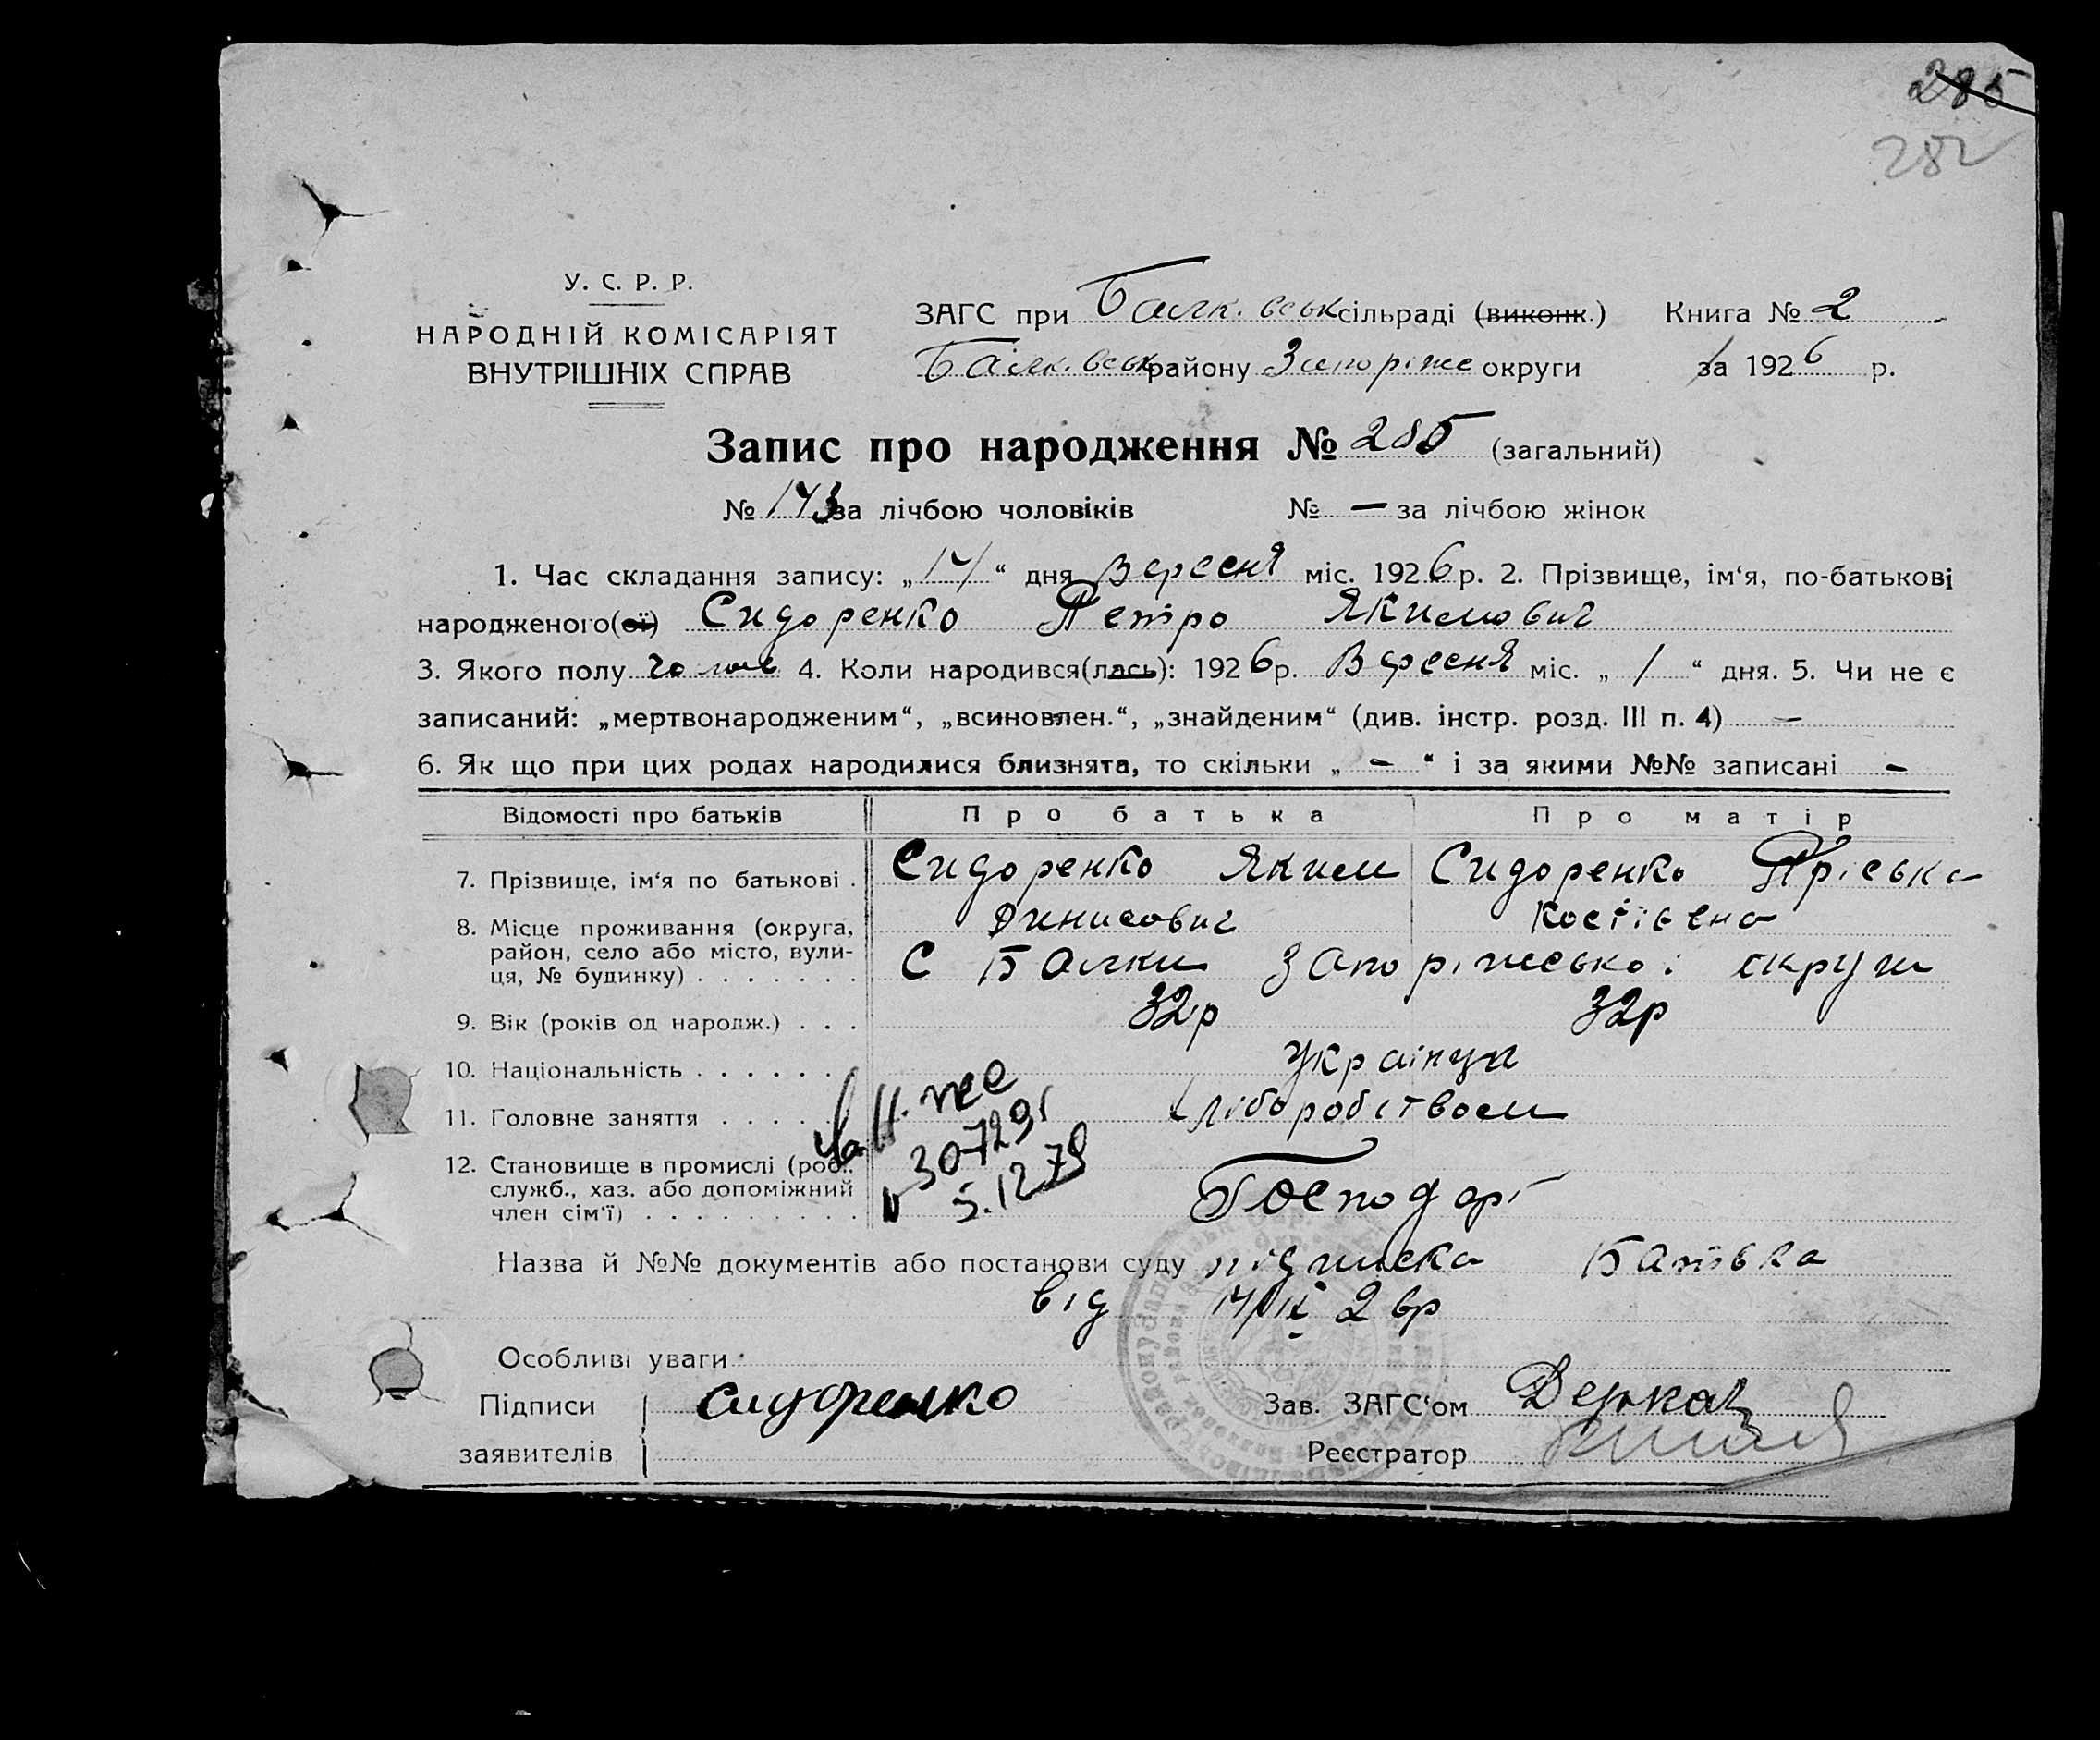 285
282
У. С. Р. Р.
НАРОДНІЙ КОМІСАРІЯТ
ВНУТРІШНІХ СПРАВ
ЗАГС при Балк. вськ сільраді (виконк.) Книга № 2
Балк. вськ району Запоріже округи за 1926 р.
Запис про народження № 285 (загальний)
№ 143 за лічбою чоловіків № — за лічбою жінок
1. Час складання запису: „14“ дня Вересня міс. 1926 р. 2. Прізвище, ім‘я, по-батькові
народженого(ої) Сидоренко Петро Якимович
3. Якого полу чолов 4. Коли народився(лась): 1926 р. Вересня міс. „1“ дня. 5. Чи не є
записаний: „мертвонародженим“, „всиновлен.“, „знайденим“ (див. інстр. розд. III п. 4) —
6. Як що при цих родах народилися близнята, то скільки „ — “ і за якими №№ записані —
Відомості про батьків Про батька Про матір
7. Прізвище, ім‘я по батькові . Сидоренко Яким Сидоренко Пріська
Динисович Костівна
8. Місце проживання (округа,
район, село або місто, вули-
ця, № будинку) . . . . . . . С Балки Запоріжської округи
9. Вік (років од народж.) . . . 32р 32р
10. Національність . . . . . . Українці
11. Головне заняття . . . . . хліборобством
12. Становище в промислі (роб.
служб., хаз. або допоміжний
член сім‘ї) . . . . . . . . . Господарі
307291
5.12 79
Назва й №№ документів або постанови суду підписка Батька
від 14/IX 26р
Особливі уваги
Підписи Сидоренко Зав. ЗАГС‘ом Деркач
заявителів Реєстратор